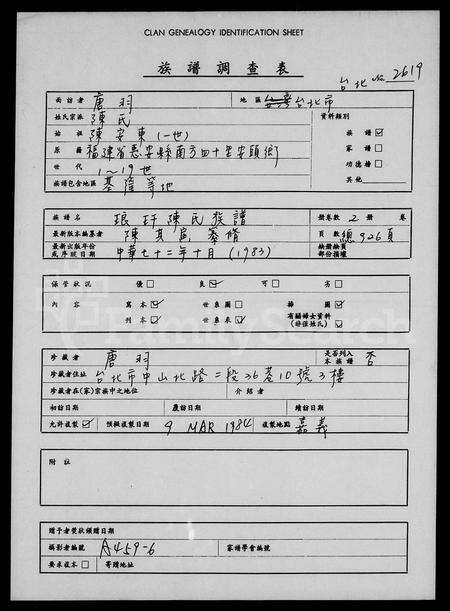 CLAN GENEALOGY IDENTIFICATION SHEET
族譜調查表
台北 No. 2619
面訪者 唐羽 地區 台北市
姓氏宗派 陳氏 資料類別
始祖 陳安東(一世) 族譜 ☑
原籍 福建省惠安縣南方四十里安頭街 家譜 ☐
世代 1~19世 功德榜 ☐
族譜包含地區 基隆等地 其他
族譜名 琅玕陳氏族譜 冊卷數 2 冊 卷
最新版本編纂者 陳其 頁數 總926頁
最新出版年份或序跋日期 中華七十二年十月 (1983) 缺冊缺頁部份損壞
保管狀況 優☐ 良☑ 可☐ 劣☐
內容 寫本☑ 世系圖☐ 插圖☑
刊本☐ 世系表☑ 有關婦女資料(除從姓氏)☑
珍藏者 唐羽 是否列入本族譜 否
珍藏者住址 台北市中山北路二段26巷10號3樓
珍藏者在(家)宗族中之地位 介紹者
初訪日期 覆訪日期 續訪日期
允許複製☑ 預擬複製日期 9 MAR 1984 複製地點 嘉義
附註
贈予者獎狀頒贈日期
攝影者編號 A459-6 家譜學會編號
要求複本☐ 寄贈地址
FamilySearch